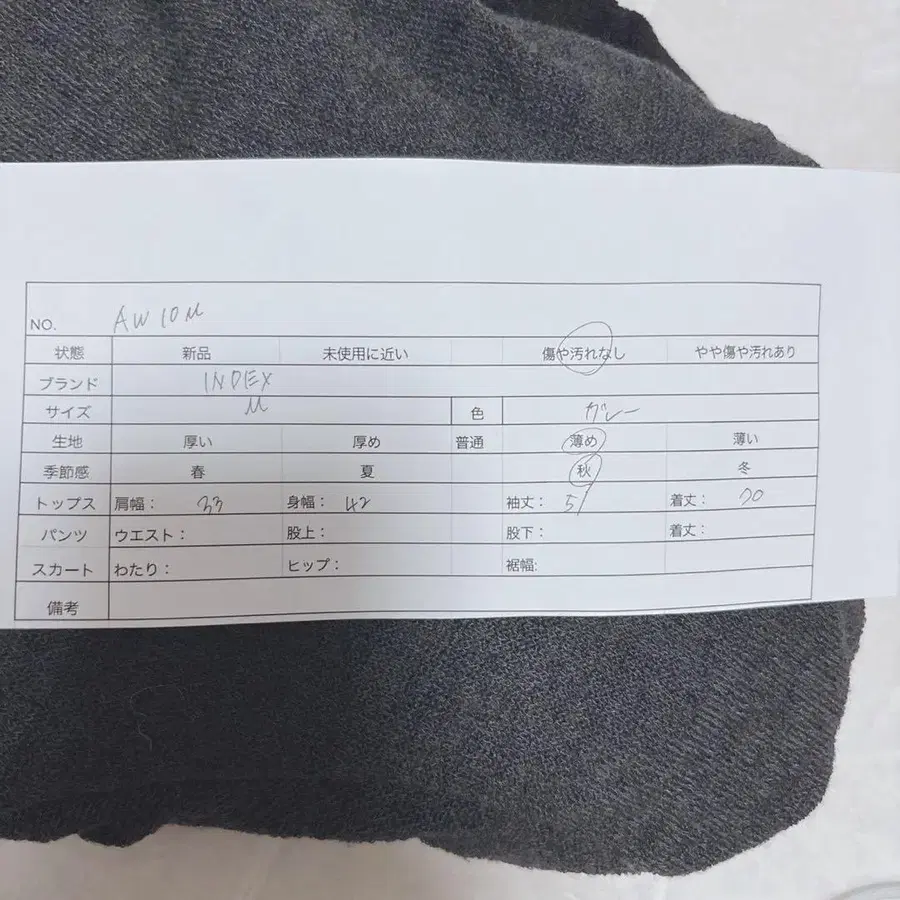 NO. AW10M
状態 新品 未使用に近い 傷や汚れなし やや傷や汚れあり
ブランド INDEX
サイズ M 色 グレー
生地 厚い 厚め 普通 薄め 薄い
季節感 春 夏 秋 冬
トップス 肩幅： 33 身幅： 42 袖丈： 51 着丈： 70
パンツ ウエスト： 股上： 股下： 着丈：
スカート わたり： ヒップ： 裾幅:
備考